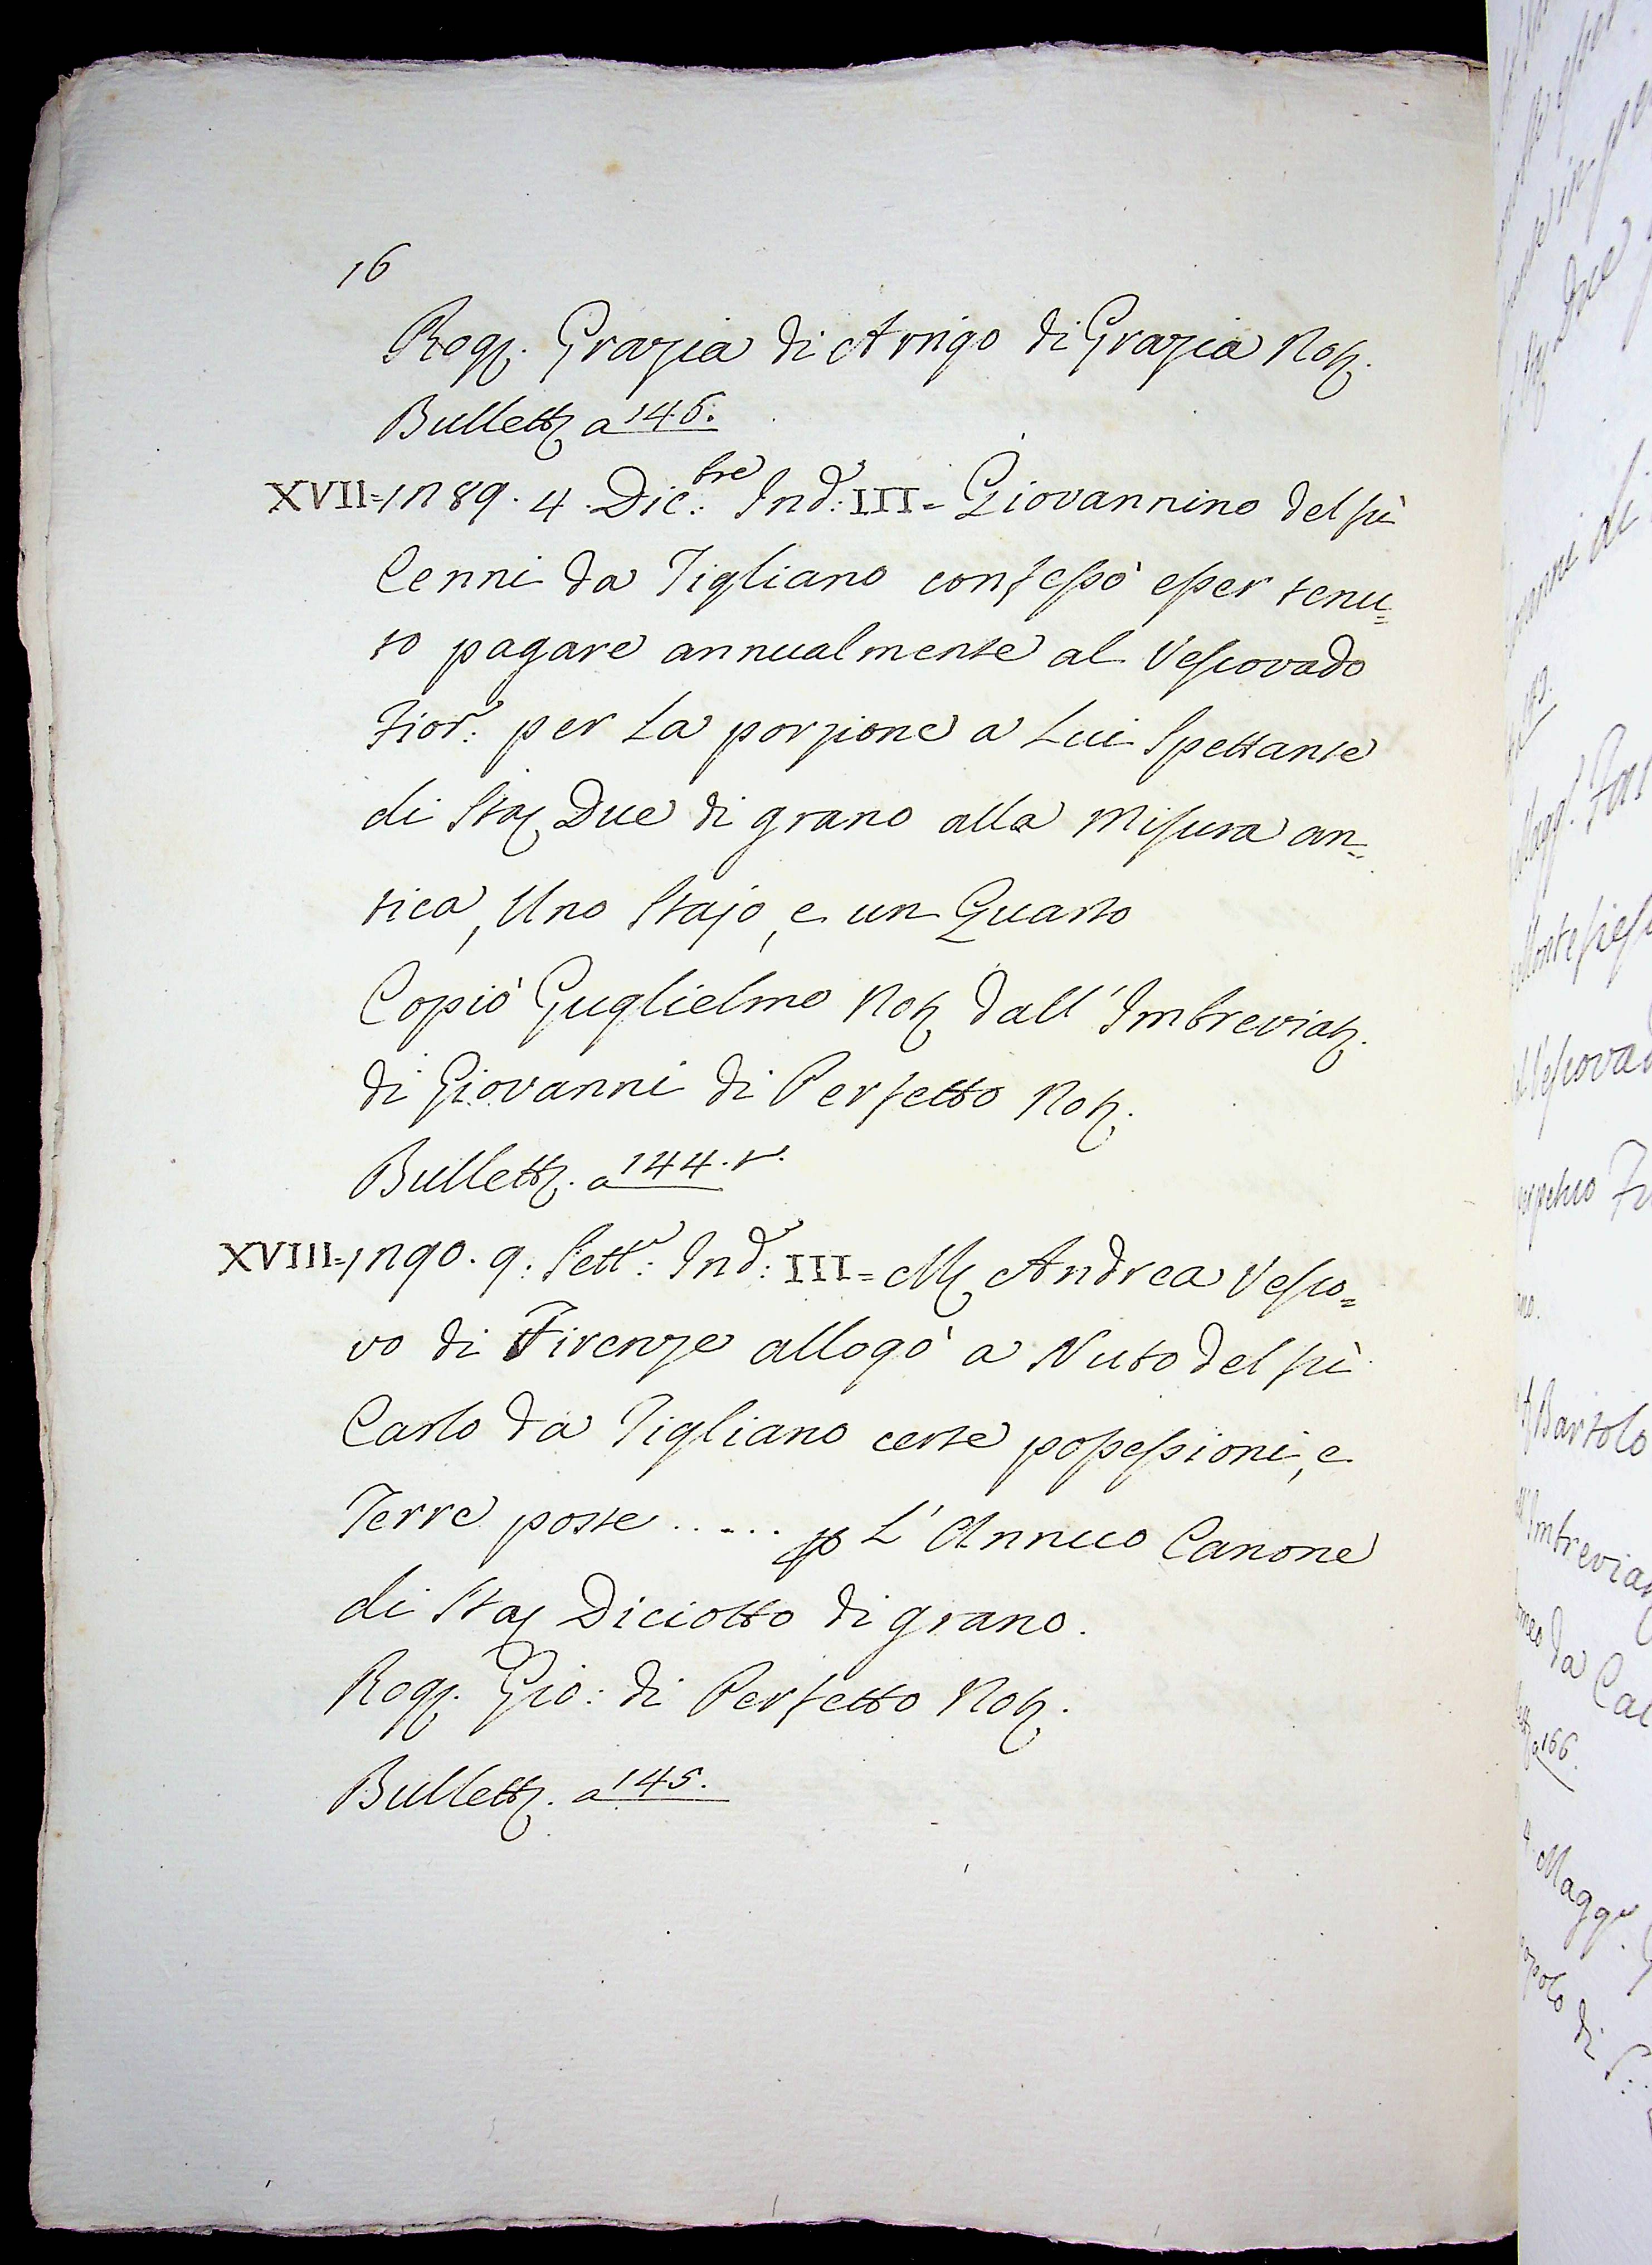 16
Rog. Grazia di Arrigo di Grazia Not.
Bullett. a 146.
XVII = 1289. 4. Dic.bre Ind: III = Giovannino del fù
Cenni da Tigliano confessò esser tenu=
to pagare annualmente al Vescovado
Fior: per La porzione a Lui Spettante
di Sta. Due di grano alla Misura an=
tica, Uno Stajo, e un Quarto
Copiò Guglielmo Not. dall' Imbreviat.
di Giovanni di Perfetto Not.
Bullett. a 144. v.
XVIII = 1290. 9. Sett: Ind: III = M. Andrea Vesco=
vo di Firenze allogò a Nuto del fù
Carlo da Tigliano certe possessioni, e
Terre poste ..... p L' Annuo Canone
di Sta. Diciotto di grano.
Rog. Gio: di Perfetto Not.
Bullett. a 145.